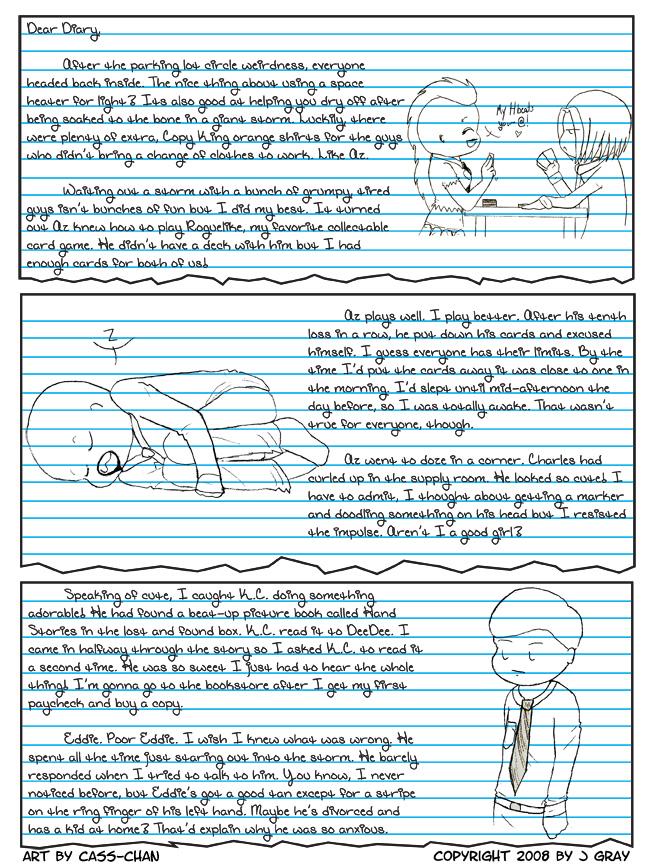 Dear Diary,
After the parking lot circle weirdness, everyone
headed back inside. The nice thing about using a space
heater for light? Its also good at helping you dry off after
being soaked to the bone in a giant storm. Luckily, there
were plenty of extra, Copy King orange shirts for the guys
who didn't bring a change of clothes to work. Like Az.
Waiting out a storm with a bunch of grumpy, tired
guys isn't bunches of fun but I did my best. It turned
out Az knew how to play Roguelike, my favorite collectable
card game. He didn't have a deck with him but I had
enough cards for both of us!
My H beats
your @!
Az plays well. I play better. After his tenth
loss in a row, he put down his cards and excused
himself. I guess everyone has their limits. By the
time I'd put the cards away it was close to one in
the morning. I'd slept until mid-afternoon the
day before, so I was totally awake. That wasn't
true for everyone, though.
Az went to doze in a corner. Charles had
curled up in the supply room. He looked so cute! I
have to admit, I thought about getting a marker
and doodling something on his head but I resisted
the impulse. Aren't I a good girl?
Z
Speaking of cute, I caught K.C. doing something
adorable! He had found a beat-up picture book called Hand
Stories in the lost and found box. K.C. read it to DeeDee. I
came in halfway through the story so I asked K.C. to read it
a second time. He was so sweet I just had to hear the whole
thing! I'm gonna go to the bookstore after I get my first
paycheck and buy a copy.
Eddie. Poor Eddie. I wish I knew what was wrong. He
spent all the time just staring out into the storm. He barely
responded when I tried to talk to him. You know, I never
noticed before, but Eddie's got a good tan except for a stripe
on the ring finger of his left hand. Maybe he's divorced and
has a kid at home? That'd explain why he was so anxious.
ART BY CASS-CHAN
COPYRIGHT 2008 BY J GRAY